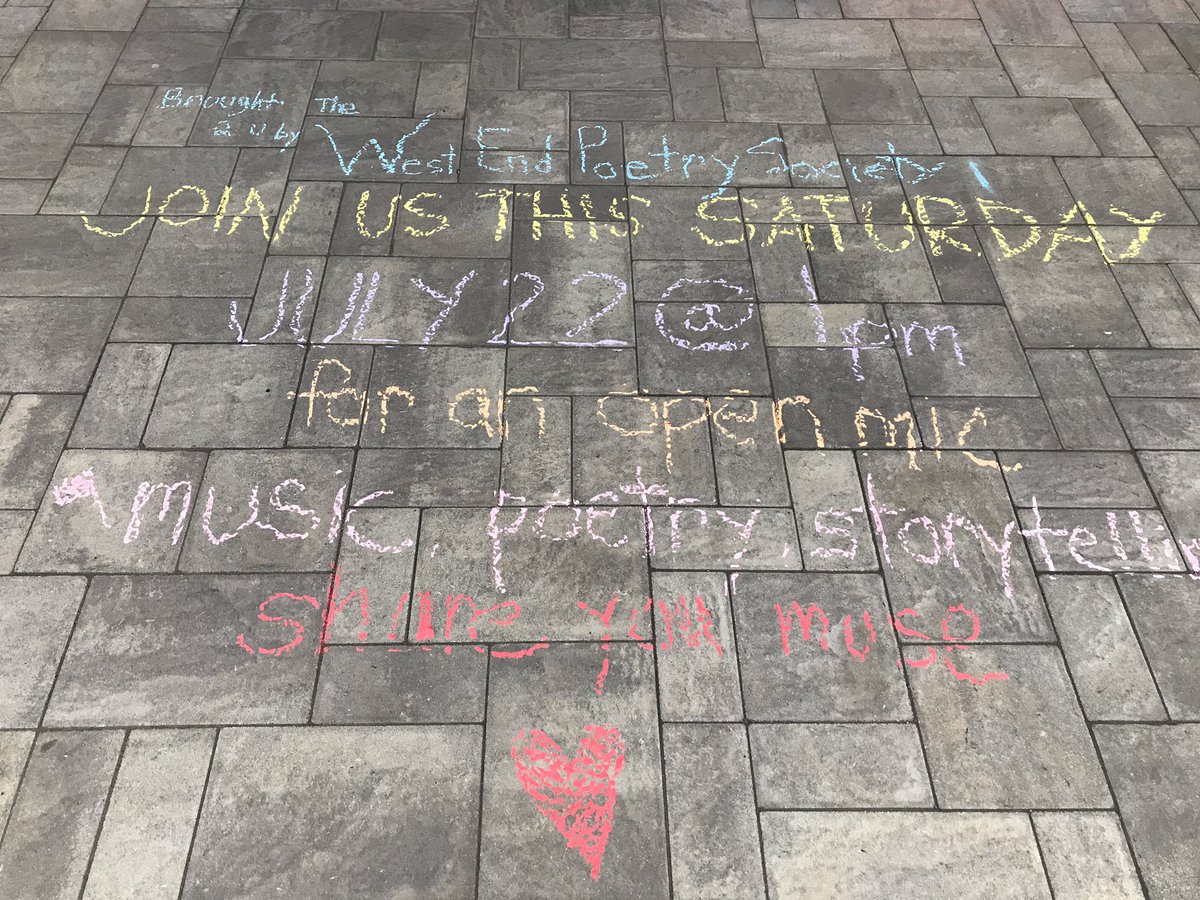 Brought The
2 U by West End Poetry Society!
JOIN US THIS SATURDAY
JULY 22 @ 1pm
for an open mic
music, poetry, storytellin
share your muse